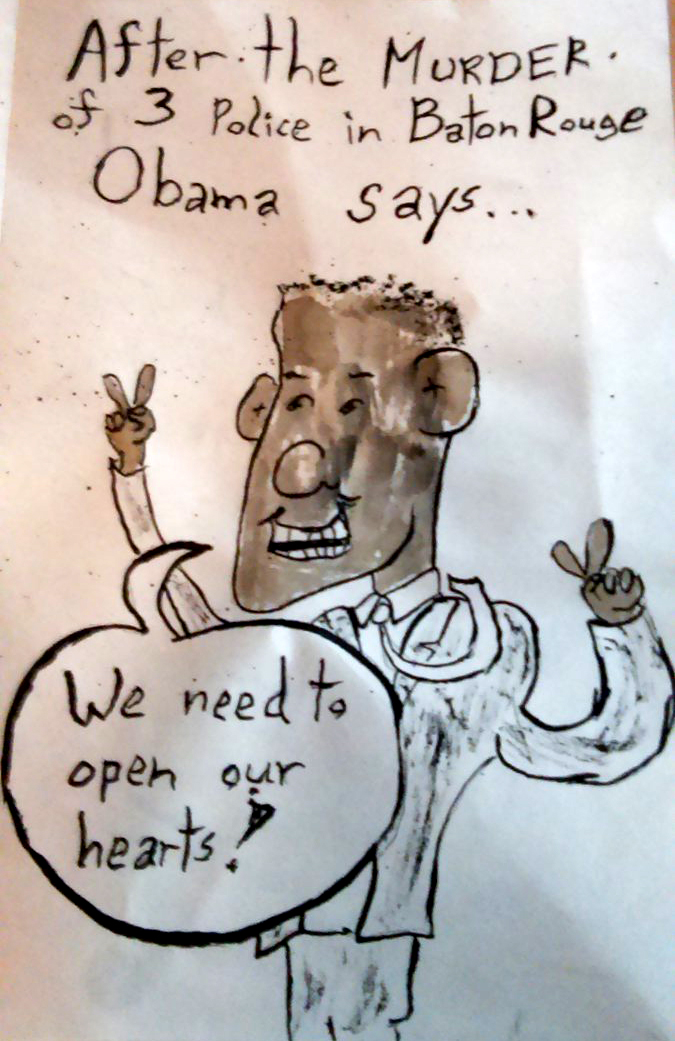 After the MURDER.
of 3 Police in Baton Rouge
Obama says...
We need to
open our
hearts!